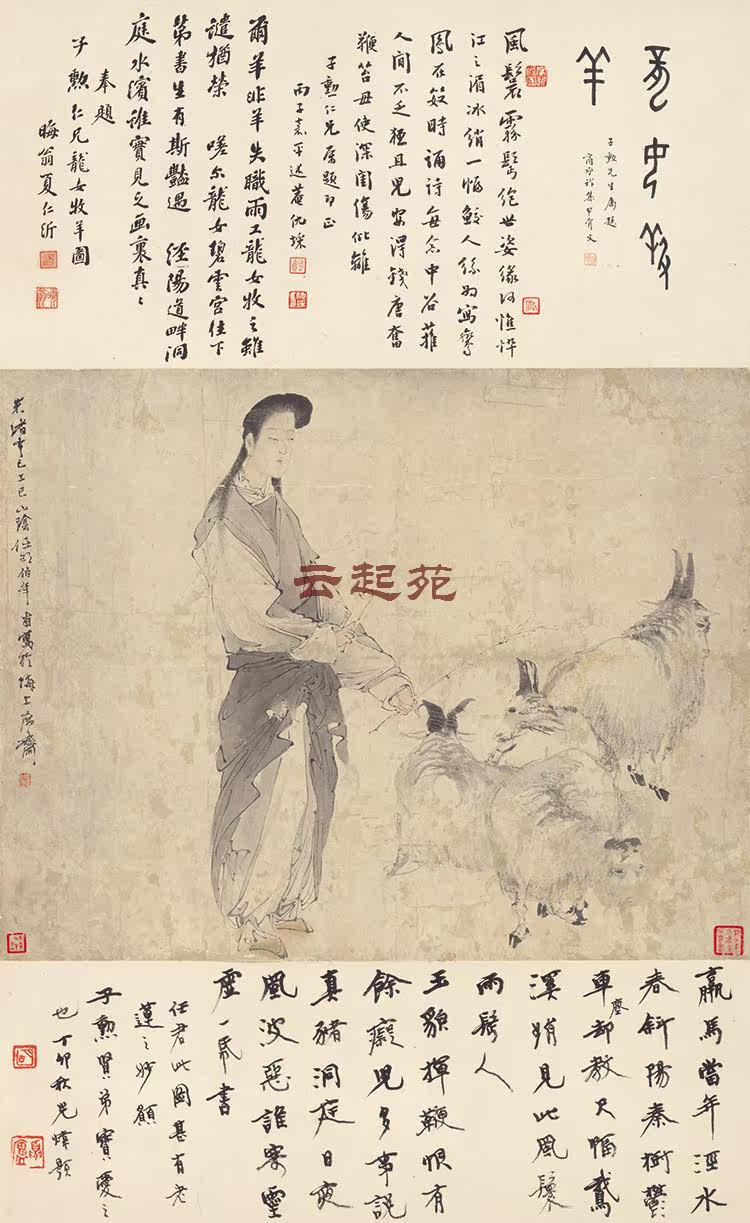 龍女牧
羊
子勲先生屬題
風鬟霧鬢絕世姿緣何憔悴
江之湄冰綃一幅鮫人絲為寫
鳳在笯時誦詩每念中谷蓷
人間不乏狂且兒安得錢唐奮
鞭笞毋使深閨傷仳離
子勲仁兄屬題即正
丙子嘉平述菴仇埰
爾羊非羊失職雨工龍女牧之雖
譴猶榮 嗟尔龍女碧雲宮住下
第書生有斯豔遇 涇陽道畔洞
庭水濱誰實見之画裏真真
奉題
子勲仁兄龍女牧羊圖
晦翁夏仁沂
光緒辛巳上巳山陰任頤伯年甫寫於海上
云起苑
羸馬當年涇水
春斜陽秦樹鬱
車塵却教尺幅鵞
溪絹見此風鬟
雨鬢人
玉貌揮鞭恨有
餘癡兒多事說
真豬洞庭日夜
風波惡誰寄靈
虛一帋書
任君此圖甚有老
蓮之妙願
子勲賢弟寶愛之
也丁卯秋